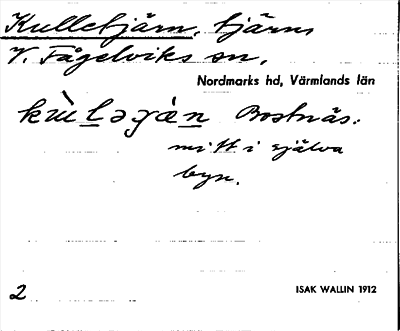 Kulletjärn, tjärn,
V. Fågelviks sn,
Nordmarks hd, Värmlands län
kùlǝɟǽn Bostnäs:
mitt i själva
byn.
2 ISAK WALLIN 1912